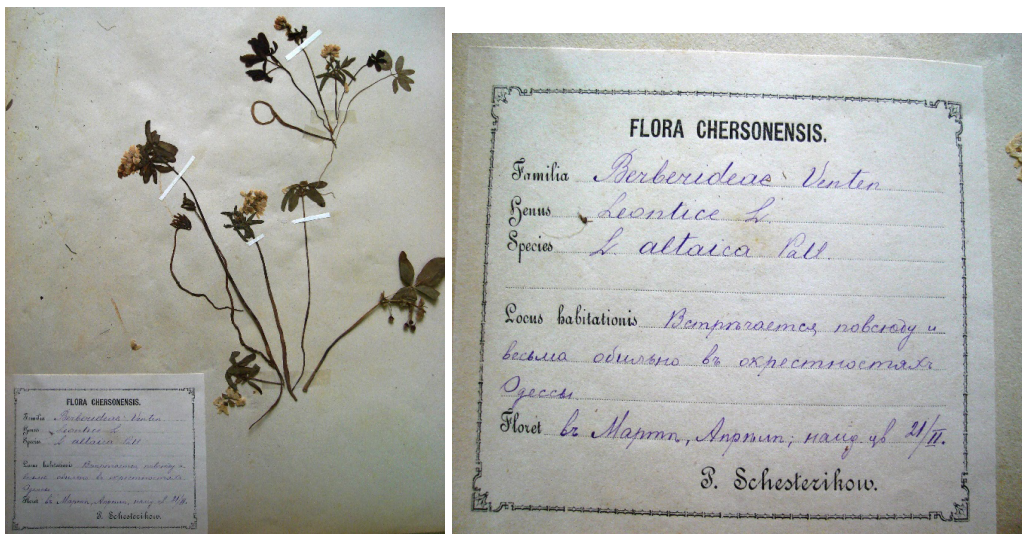 FLORA CHERSONENSIS.
Familia Berberideae Venten
Genus Leontice L
Species L altaica Pall.
Locus habitationis Встрѣчается повсюду и
весьма обильно въ окрестностяхъ
Одессы
Floret въ Мартѣ, Апрѣлѣ; наид цв 21/II.
P. Schesterikow.
FLORA CHERSONENSIS.
Familia Berberideae Venten
Genus Leontice L
Species L altaica Pall
Locus habitationis Встрѣчается повсюду и
весьма обильно въ окрестностяхъ
Одессы
Floret въ Мартѣ, Апрѣлѣ, наид цв 21/II.
P. Schesterikow.